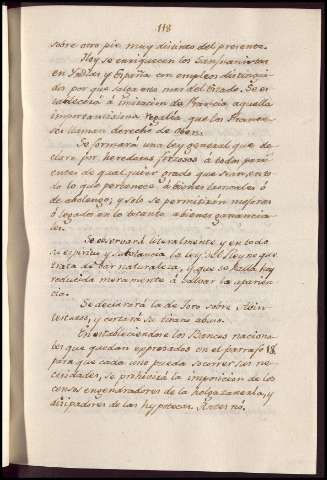 118
sobre otro pie muy distinto del presente.
Hoy se enriquecen los
en Yndias y España con empleos distingui-
dos por que salga este mar del Estado. Se es-
tablecerá á imitacion de Francia aquella
importantisima regalia que los France-
ses llaman derecho de
Se formará una ley general que de-
clare por herederos forzosos á todos pari-
entes de qualquiera grado que sean en to-
do lo que pertenece á bienes troncales ó
de abolengo, y solo se permitirán mejoras
ó legados en lo
les.
Se observará literalmente y en todo
su espiritu y substancia la ley del Reyno que
trata de dar naturaleza, y que se halla hoy
reducida meramente á salvar la aparien-
cia.
Se declarará la de Toro sobre Abin-
testatos, y cortará su tirano abuso.
En estableciendose los Bancos naciona-
les que quedan expresados en el parrafo 18
para que cada uno pueda socorrer sus ne-
cesidades, se prohivirá la imposicion de los
censos engendradores de la holgazaneria, y
disipadores de las hypotecas.